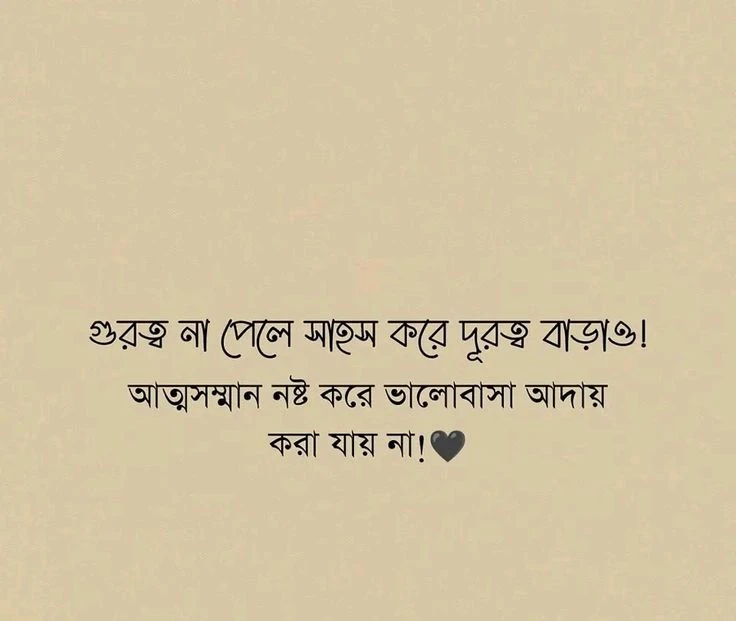 গুরত্ব না পেলে সাহস করে দূরত্ব বাড়াও!
আত্মসম্মান নষ্ট করে ভালোবাসা আদায়
করা যায় না!🖤